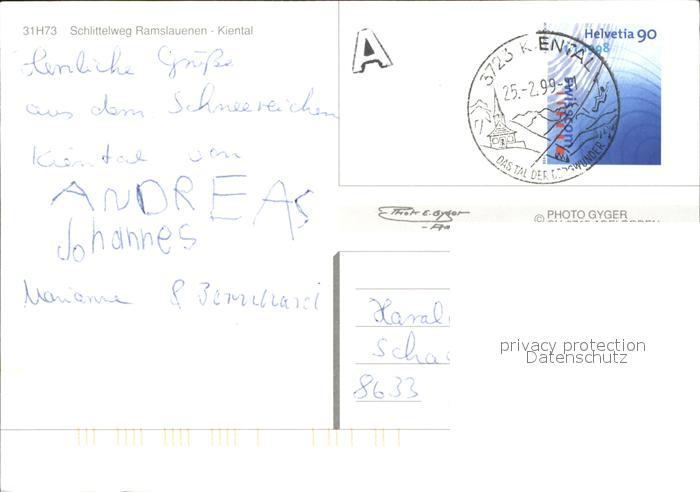 31H73 Schlittelweg Ramslauenen - Kiental
Herzliche Grüße
aus dem Schneereichen
Kiental von
ANDREAS
Johannes
Marianne & Bernhard
A
Helvetia 90
1998
swisscom
3723 KIENTAL
25.-2.99-11
DAS TAL DER BERGWUNDER
Photo E. Gyger
© PHOTO GYGER
Haral
Scha
8633
privacy protection
Datenschutz